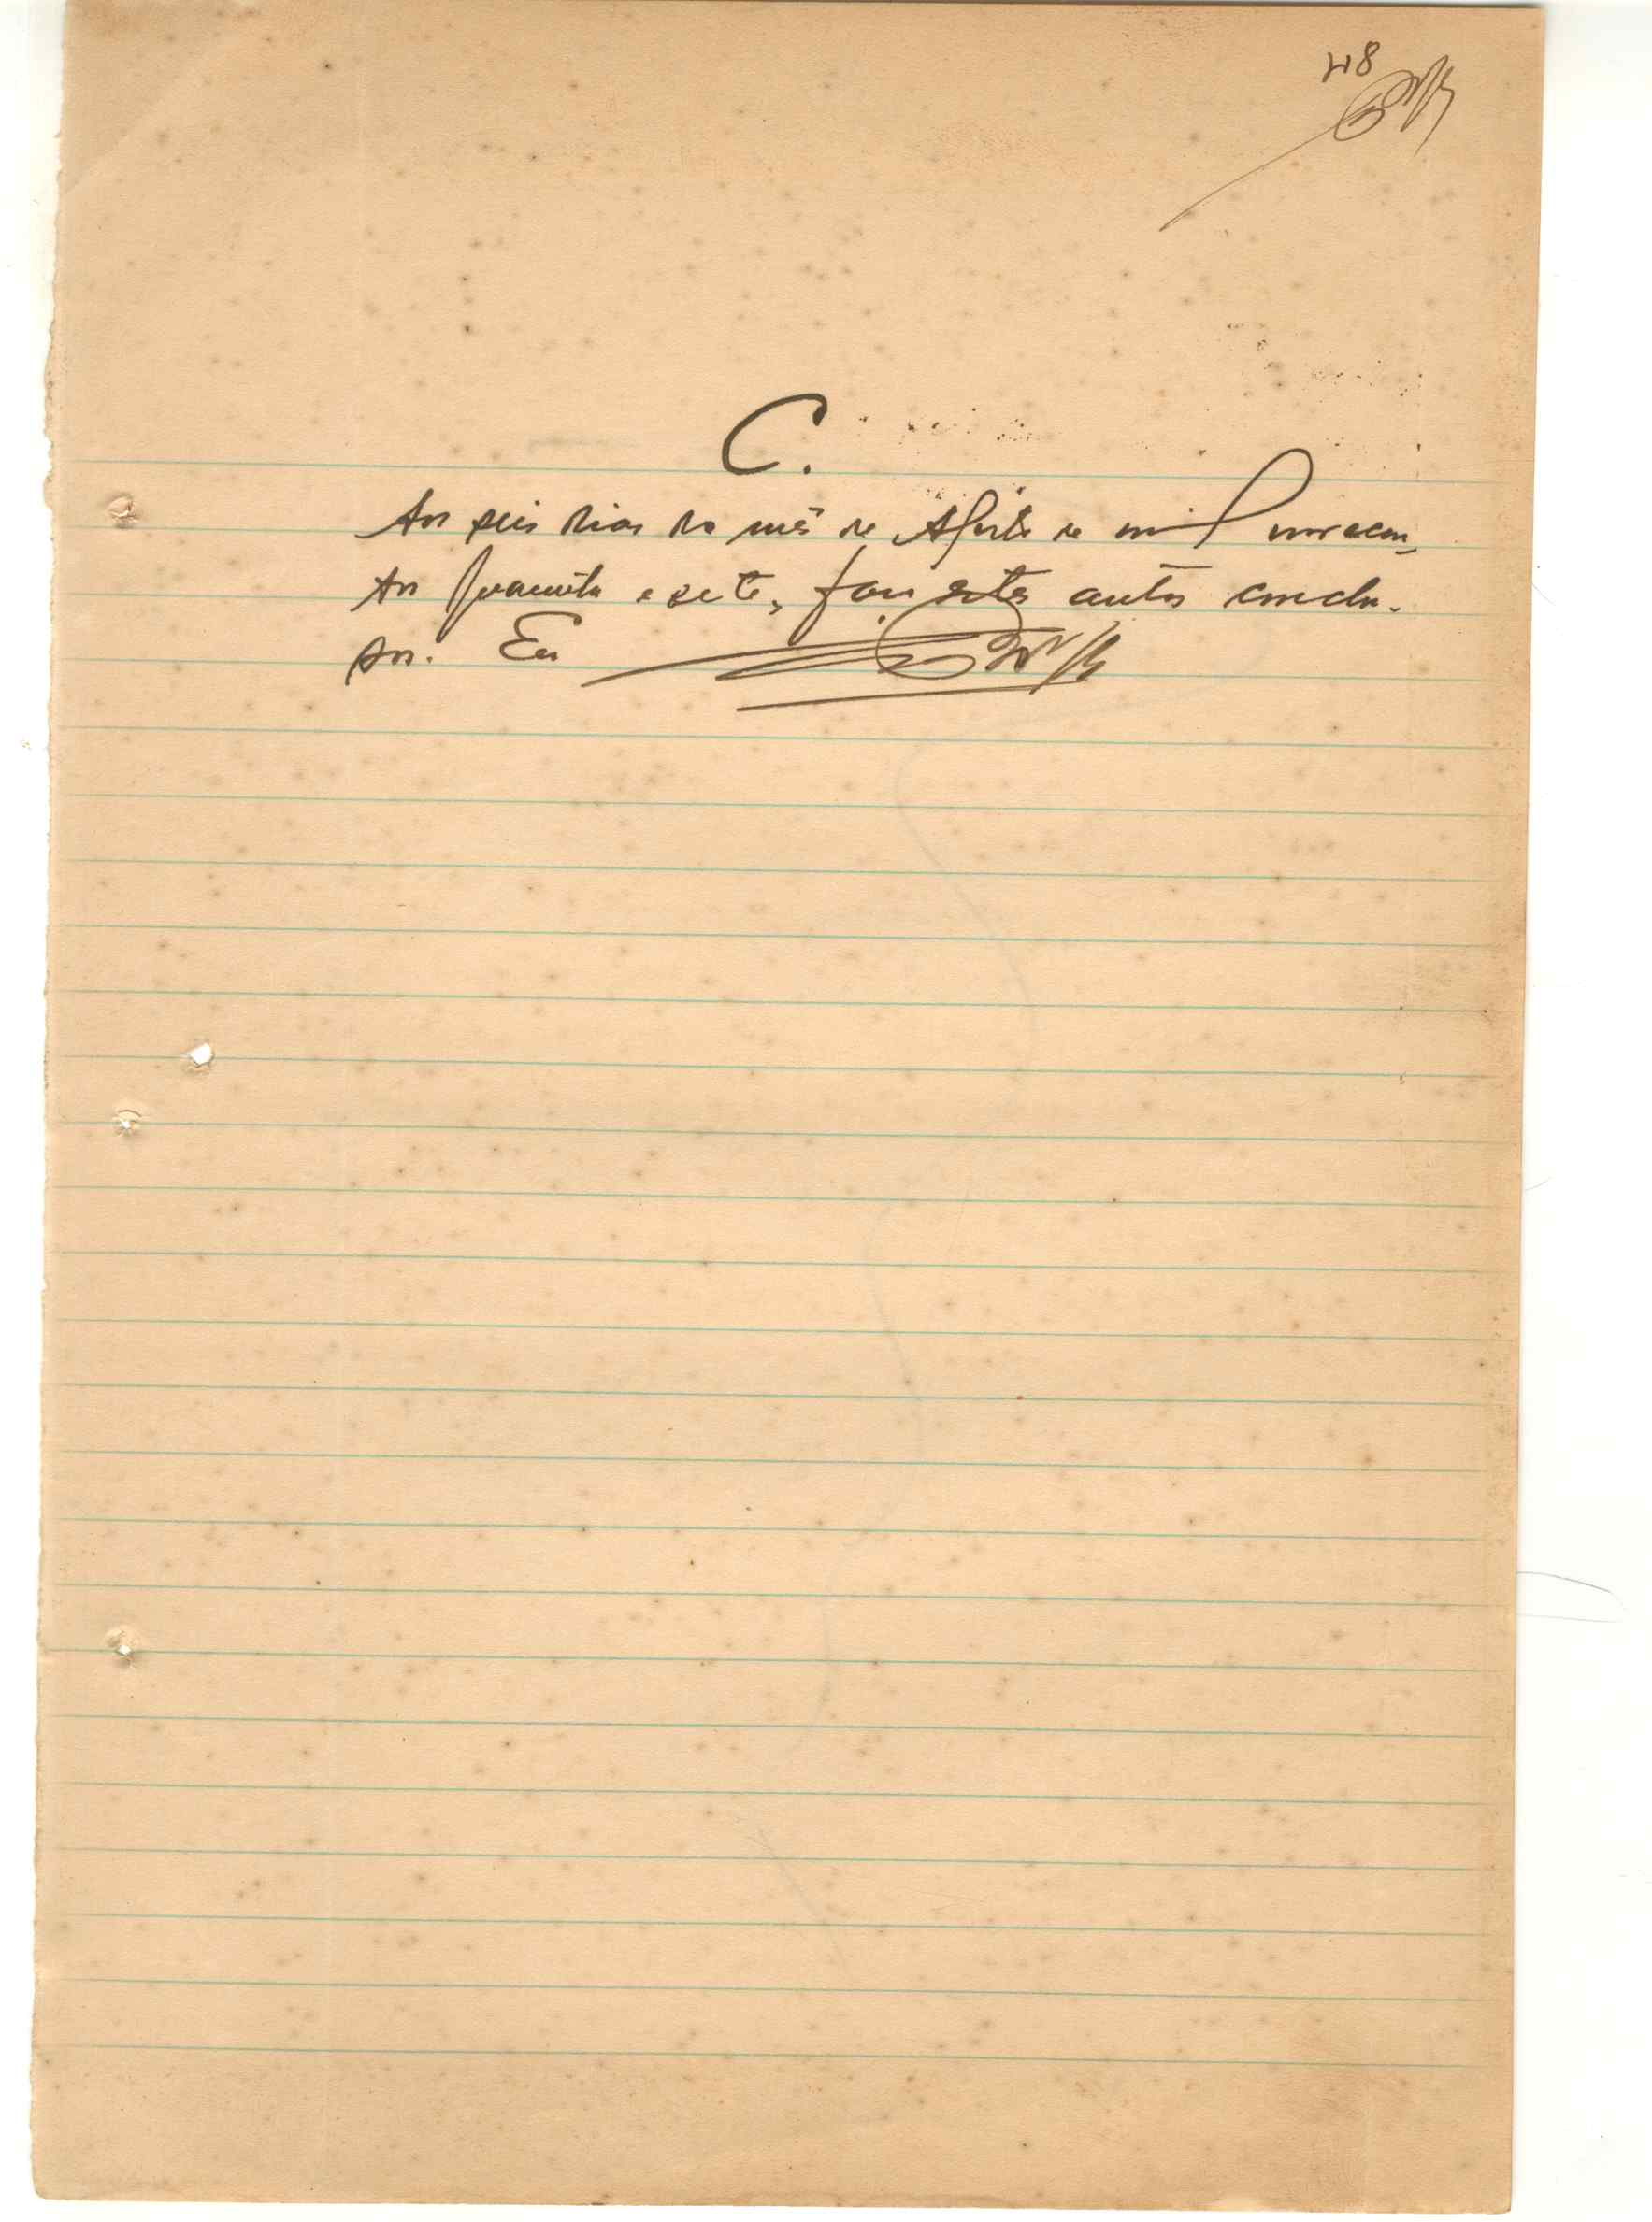 48
C.
Aos seis dias do mês de Agosto de mil novecen-
tos quarenta e sete, faço estes autos conclu-
sos. Eu